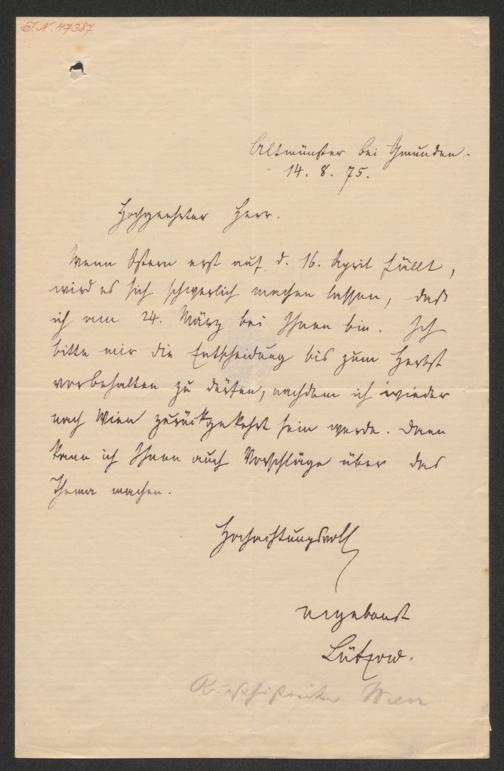 I. N. 47387
Altmünster bei Gmunden.
14. 8. 75.
Hochgeehrter Herr.
Wenn Ostern erst auf d. 16. April fällt,
wird es sich schwerlich machen lassen, daß
ich am 24. März bei Ihnen bin. Ich
bitte mir die Entscheidung bis zum Herbst
vorbehalten zu dürfen, nachdem ich wieder
nach Wien zurückgekehrt sein werde. Dann
kann ich Ihnen auch Vorschläge über das
Thema machen.
Hochachtungsvoll
ergebenst
Lützow.
Wien